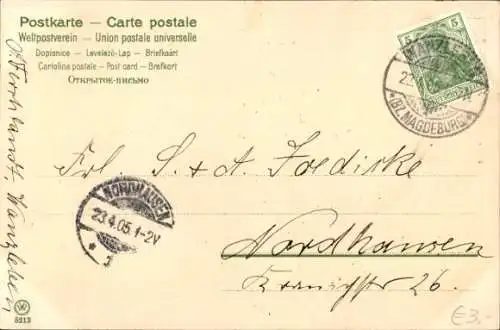 Postkarte – Carte postale
Weltpostverein – Union postale universelle
Dopisnice – Levelező-Lap – Brefkaart
Cartolina postale – Post card – Brefkort
Открытое письмо
5 5
WANZLEBEN
*(BZ. MAGDEBURG)*
Frl. S. & A. Joedicke
NORDHAUSEN
23.4.05.1-2V
* 1
Nordhausen
Kranichstr 26.
Wanzleben
5213
€3,-